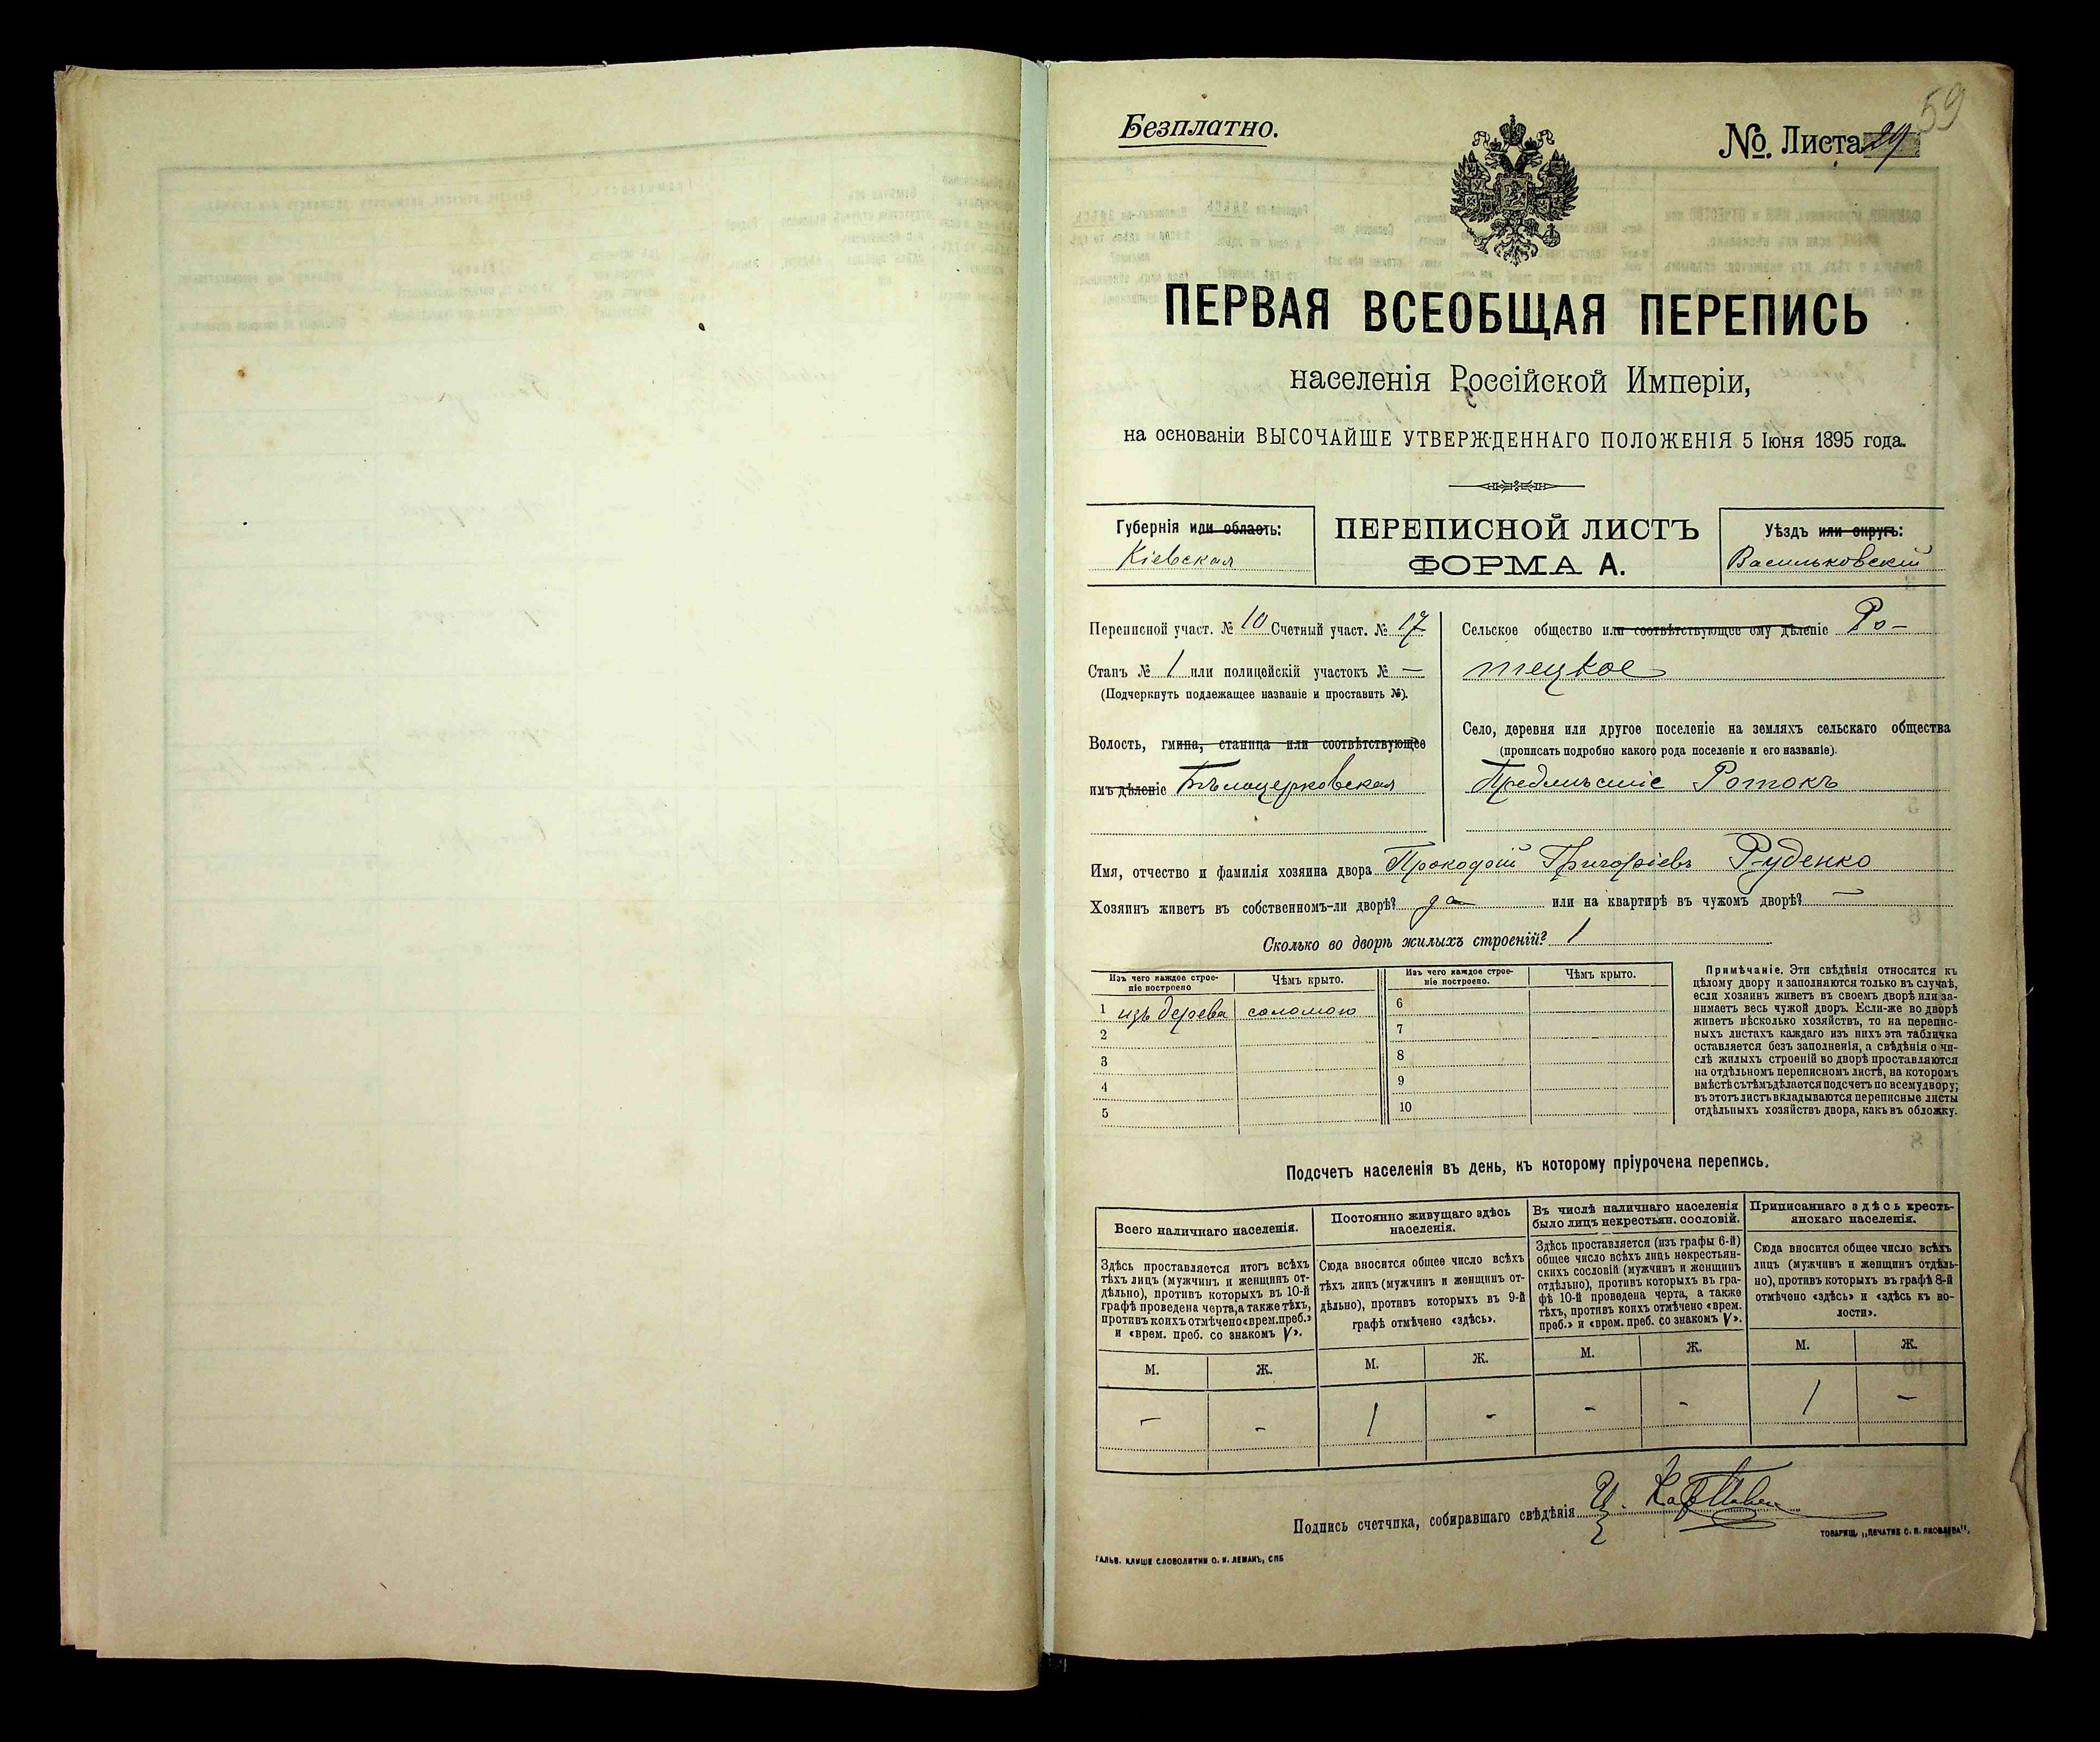 59
Безплатно.
№. Листа 29
ПЕРВАЯ ВСЕОБЩАЯ ПЕРЕПИСЬ
населенія Россійской Имперіи,
на основаніи ВЫСОЧАЙШЕ УТВЕРЖДЕННАГО ПОЛОЖЕНІЯ 5 Іюня 1895 года.
Губернія или область:
Кіевская
ПЕРЕПИСНОЙ ЛИСТЪ
ФОРМА А.
Уѣздъ или округъ:
Васильковскій
Переписной участ. № 10 Счетный участ. № 17
Станъ № 1 или полицейскій участокъ № —
(Подчеркнуть подлежащее названіе и проставить №).
Волость, гмина, станица или соотвѣтствующее
имъ дѣленіе Бѣлоцерковская
Сельское общество или соотвѣтствующее ему дѣленіе Ро-
тецкое
Село, деревня или другое поселеніе на земляхъ сельскаго общества
(прописать подробно какого рода поселеніе и его названіе).
Предмѣстіе Ротокъ
Имя, отчество и фамилія хозяина двора Григоріевъ Руденко
Хозяинъ живетъ въ собственномъ-ли дворѣ? да или на квартирѣ въ чужомъ дворѣ? —
Сколько во дворѣ жилыхъ строеній? 1
Изъ чего каждое строе-
ніе построено
Чѣмъ крыто.
Изъ чего каждое строе-
ніе построено.
Чѣмъ крыто.
1 изъ дерева соломою
2
3
4
5
6
7
8
9
10
Примѣчаніе. Эти свѣдѣнія относятся къ
цѣлому двору и заполняются только въ случаѣ,
если хозяинъ живетъ въ своемъ дворѣ или за-
нимаетъ весь чужой дворъ. Если-же во дворѣ
живетъ нѣсколько хозяйствъ, то на перепис-
ныхъ листахъ каждаго изъ нихъ эта табличка
оставляется безъ заполненія, а свѣдѣнія о чи-
слѣ жилыхъ строеній во дворѣ проставляются
на отдѣльномъ переписномъ листѣ, на которомъ
вмѣстѣ съ тѣмъ дѣлается подсчетъ по всему двору;
въ этотъ листъ вкладываются переписные листы
отдѣльныхъ хозяйствъ двора, какъ въ обложку.
Подсчетъ населенія въ день, къ которому пріурочена перепись.
Всего наличнаго населенія.
Здѣсь проставляется итогъ всѣхъ
тѣхъ лицъ (мужчинъ и женщинъ от-
дѣльно), противъ которыхъ въ 10-й
графѣ проведена черта, а также тѣхъ,
противъ коихъ отмѣчено «врем. преб.»
и «врем. преб. со знакомъ V».
М. Ж.
— -
Постоянно живущаго здѣсь
населенія.
Сюда вносится общее число всѣхъ
тѣхъ лицъ (мужчинъ и женщинъ от-
дѣльно), противъ которыхъ въ 9-й
графѣ отмѣчено «здѣсь».
М. Ж.
1 -
Въ числѣ наличнаго населенія
было лицъ некрестьян. сословій.
Здѣсь проставляется (изъ графы 6-й)
общее число всѣхъ лицъ некрестьян-
скихъ сословій (мужчинъ и женщинъ
отдѣльно), противъ которыхъ въ гра-
фѣ 10-й проведена черта, а также
тѣхъ, противъ коихъ отмѣчено «врем.
преб.» и «врем. преб. со знакомъ V».
М. Ж.
- -
Приписаннаго здѣсь кресть-
янскаго населенія.
Сюда вносится общее число всѣхъ
лицъ (мужчинъ и женщинъ отдѣль-
но), противъ которыхъ въ графѣ 8-й
отмѣчено «здѣсь» и «здѣсь къ во-
лости».
М. Ж.
1 —
Подпись счетчика, собиравшаго свѣдѣнія
ГАЛЬВ. КЛИШЕ СЛОВОЛИТНИ О. И. ЛЕМАНЪ, СПБ
ТОВАРИЩ. „ПЕЧАТНЯ С. П. ЯКОВЛЕВА“.